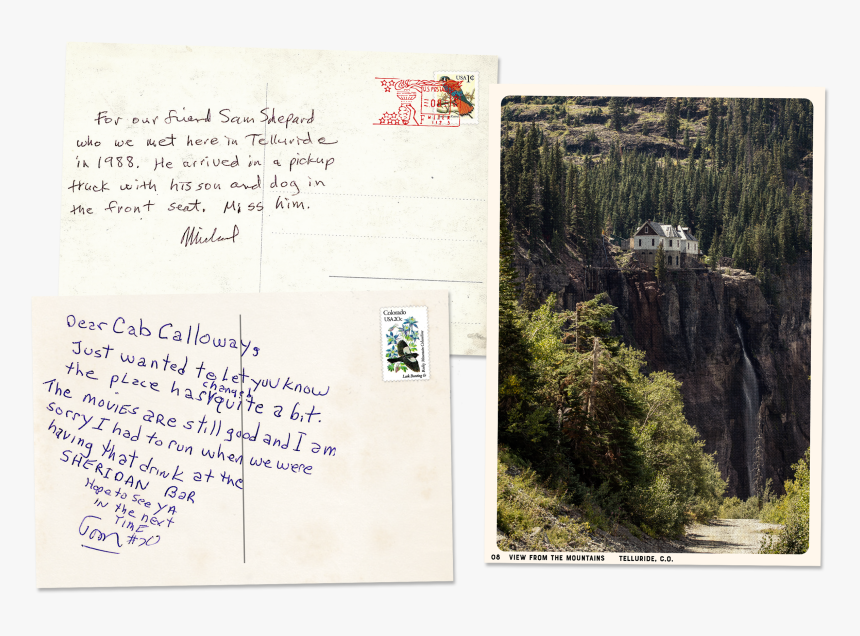 For our friend Sam Shepard
who we met here in Telluride
in 1988. He arrived in a pickup
truck with his son and dog in
the front seat. Miss him.
Michael
USA 1c
U.S. POSTAGE
Dear Cab Calloway,
Just wanted to let you know
the place has changed quite a bit.
The movies are still good and I am
sorry I had to run when we were
having that drink at the
SHERIDAN BaR
Hope to see YA
IN the next
TIME
Tom #20
Colorado
USA20c
Lark Bunting &
Rocky Mountain Columbine
08 VIEW FROM THE MOUNTAINS TELLURIDE, C.O.